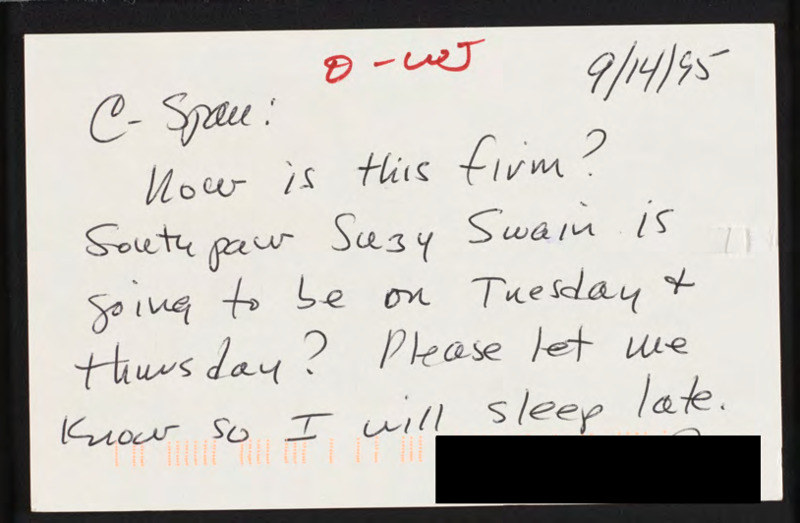 - WJ
9/14/95
C-Span:
Now is this firm?
Southpaw Suzy Swain is
going to be on Tuesday +
thursday? Please let me
Know so I will sleep late.